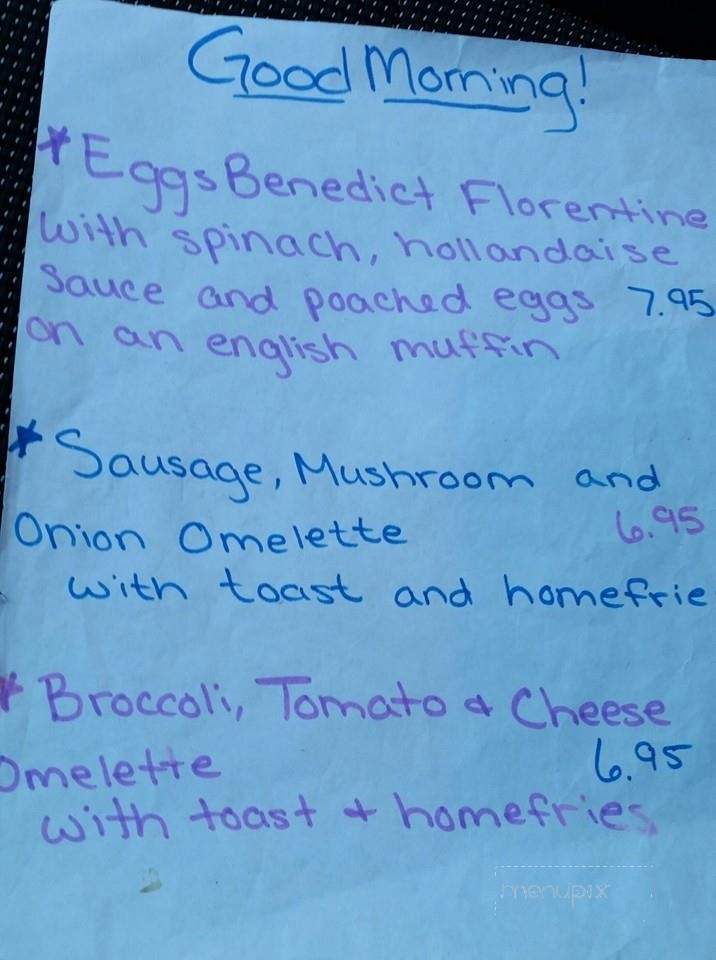 Good Morning!
* Eggs Benedict Florentine
with spinach, hollandaise
sauce and poached eggs 7.95
on an english muffin
* Sausage, Mushroom and
Onion Omelette 6.95
with toast and homefrie
* Broccoli, Tomato & Cheese
Omelette 6.95
with toast & homefries
menupix